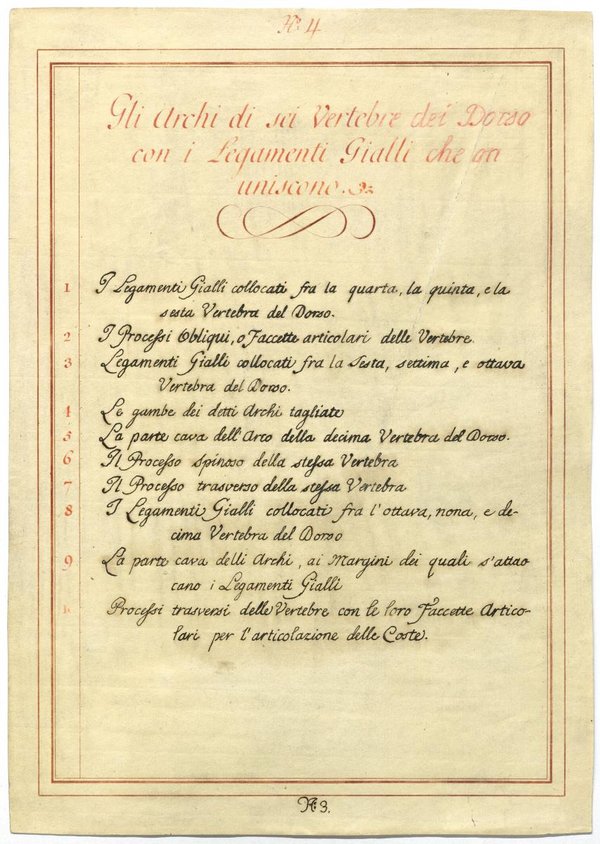 N.° 4
Gli Archi di sei Vertebre del Dorso
con i Legamenti Gialli che
uniscono.
1 I Legamenti Gialli collocati fra la quarta, la quinta, e la
sesta Vertebra del Dorso.
2 I Processi Obliqui, o Faccette articolari delle Vertebre.
3 Legamenti Gialli collocati fra la Sesta, settima, e ottava
Vertebra del Dorso.
4 Le gambe dei detti Archi tagliate
5 La parte cava dell'Arco della decima Vertebra del Dorso.
6 Il Processo spinoso della stessa Vertebra
7 Il Processo trasverso della stessa Vertebra
8 I Legamenti Gialli collocati fra l'ottava, nona, e de-
cima Vertebra del Dorso
9 La parte cava delli Archi, ai Margini dei quali s'attac
cano i Legamenti Gialli
Processi trasversi delle Vertebre con le loro Faccette Artico-
lari per l'articolazione delle Coste.
N.° 3.